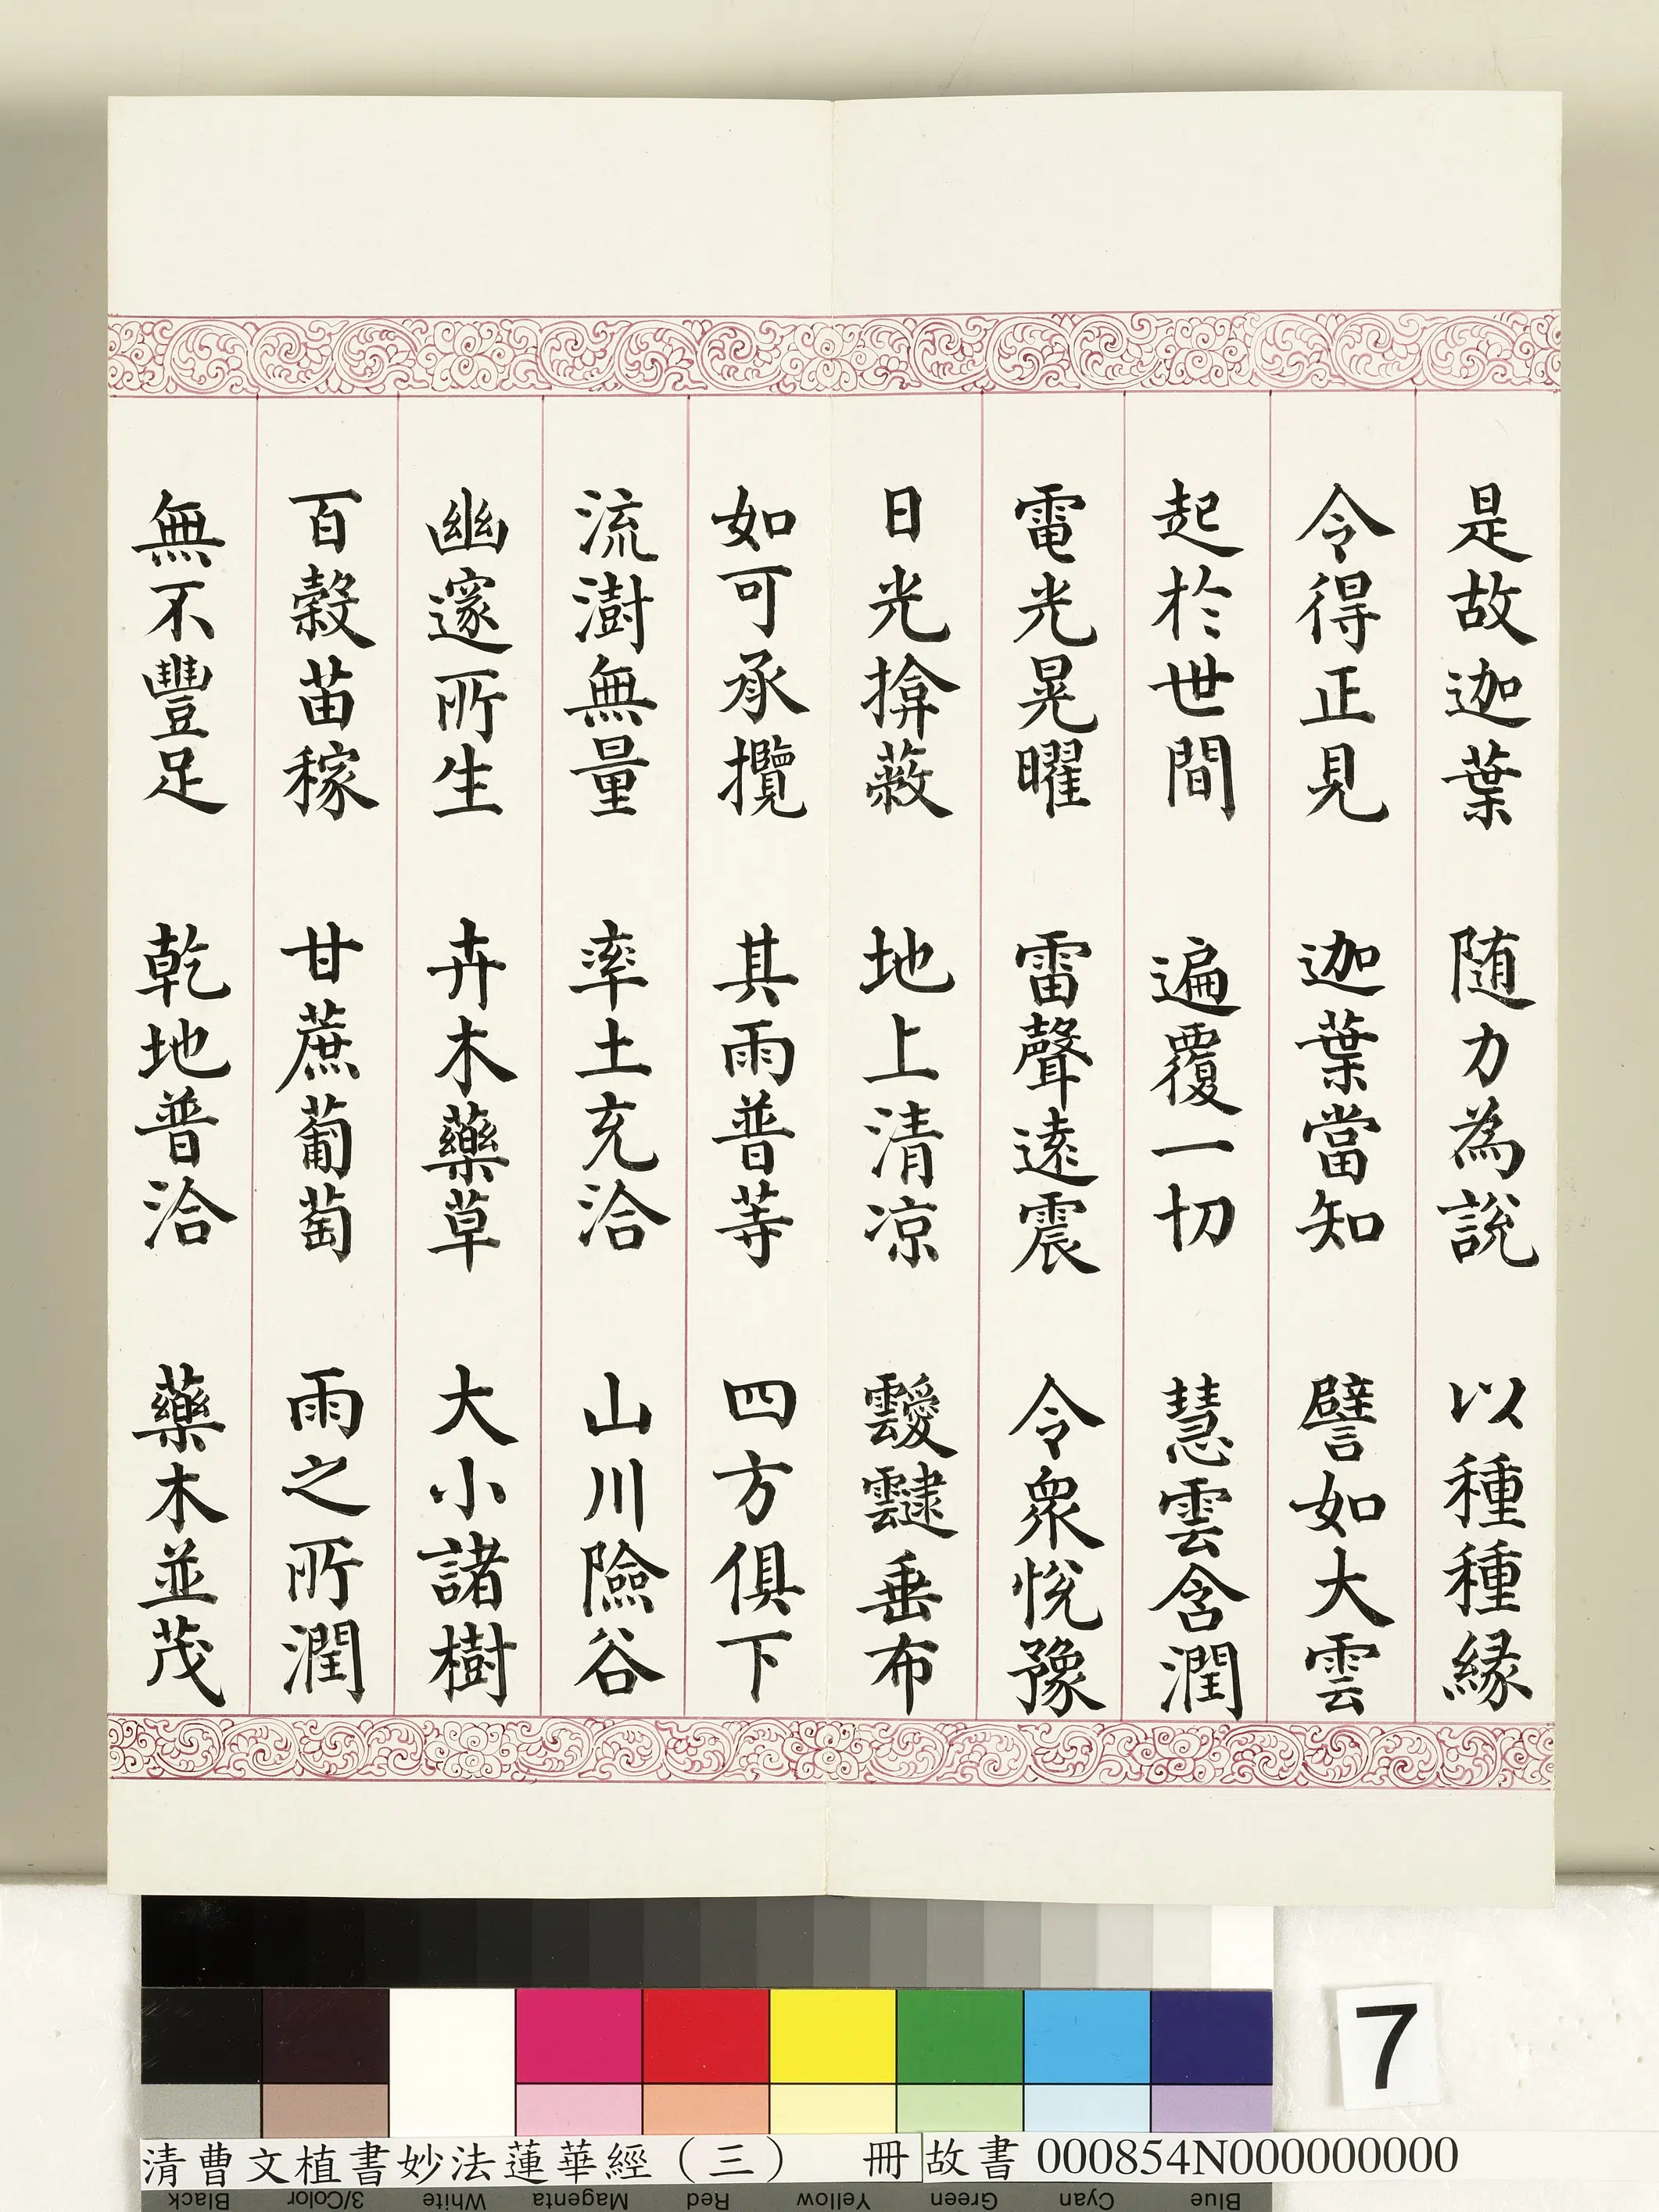 是故迦葉 随力為說 以種種緣
令得正見 迦葉當知 譬如大雲
起於世間 遍覆一切 慧雲含潤
電光晃曜 雷聲遠震 令衆悅豫
日光揜蔽 地上清凉 靉靆垂布
如可承攬 其雨普等 四方俱下
流澍無量 率土充洽 山川險谷
幽邃所生 卉木藥草 大小諸樹
百穀苗稼 甘蔗葡萄 雨之所潤
無不豐足 乾地普洽 藥木並茂
7
清曹文植書妙法蓮華經（三） 冊 故書 000854N000000000
Black 3/Color White Magenta Red Yellow Green Cyan Blue